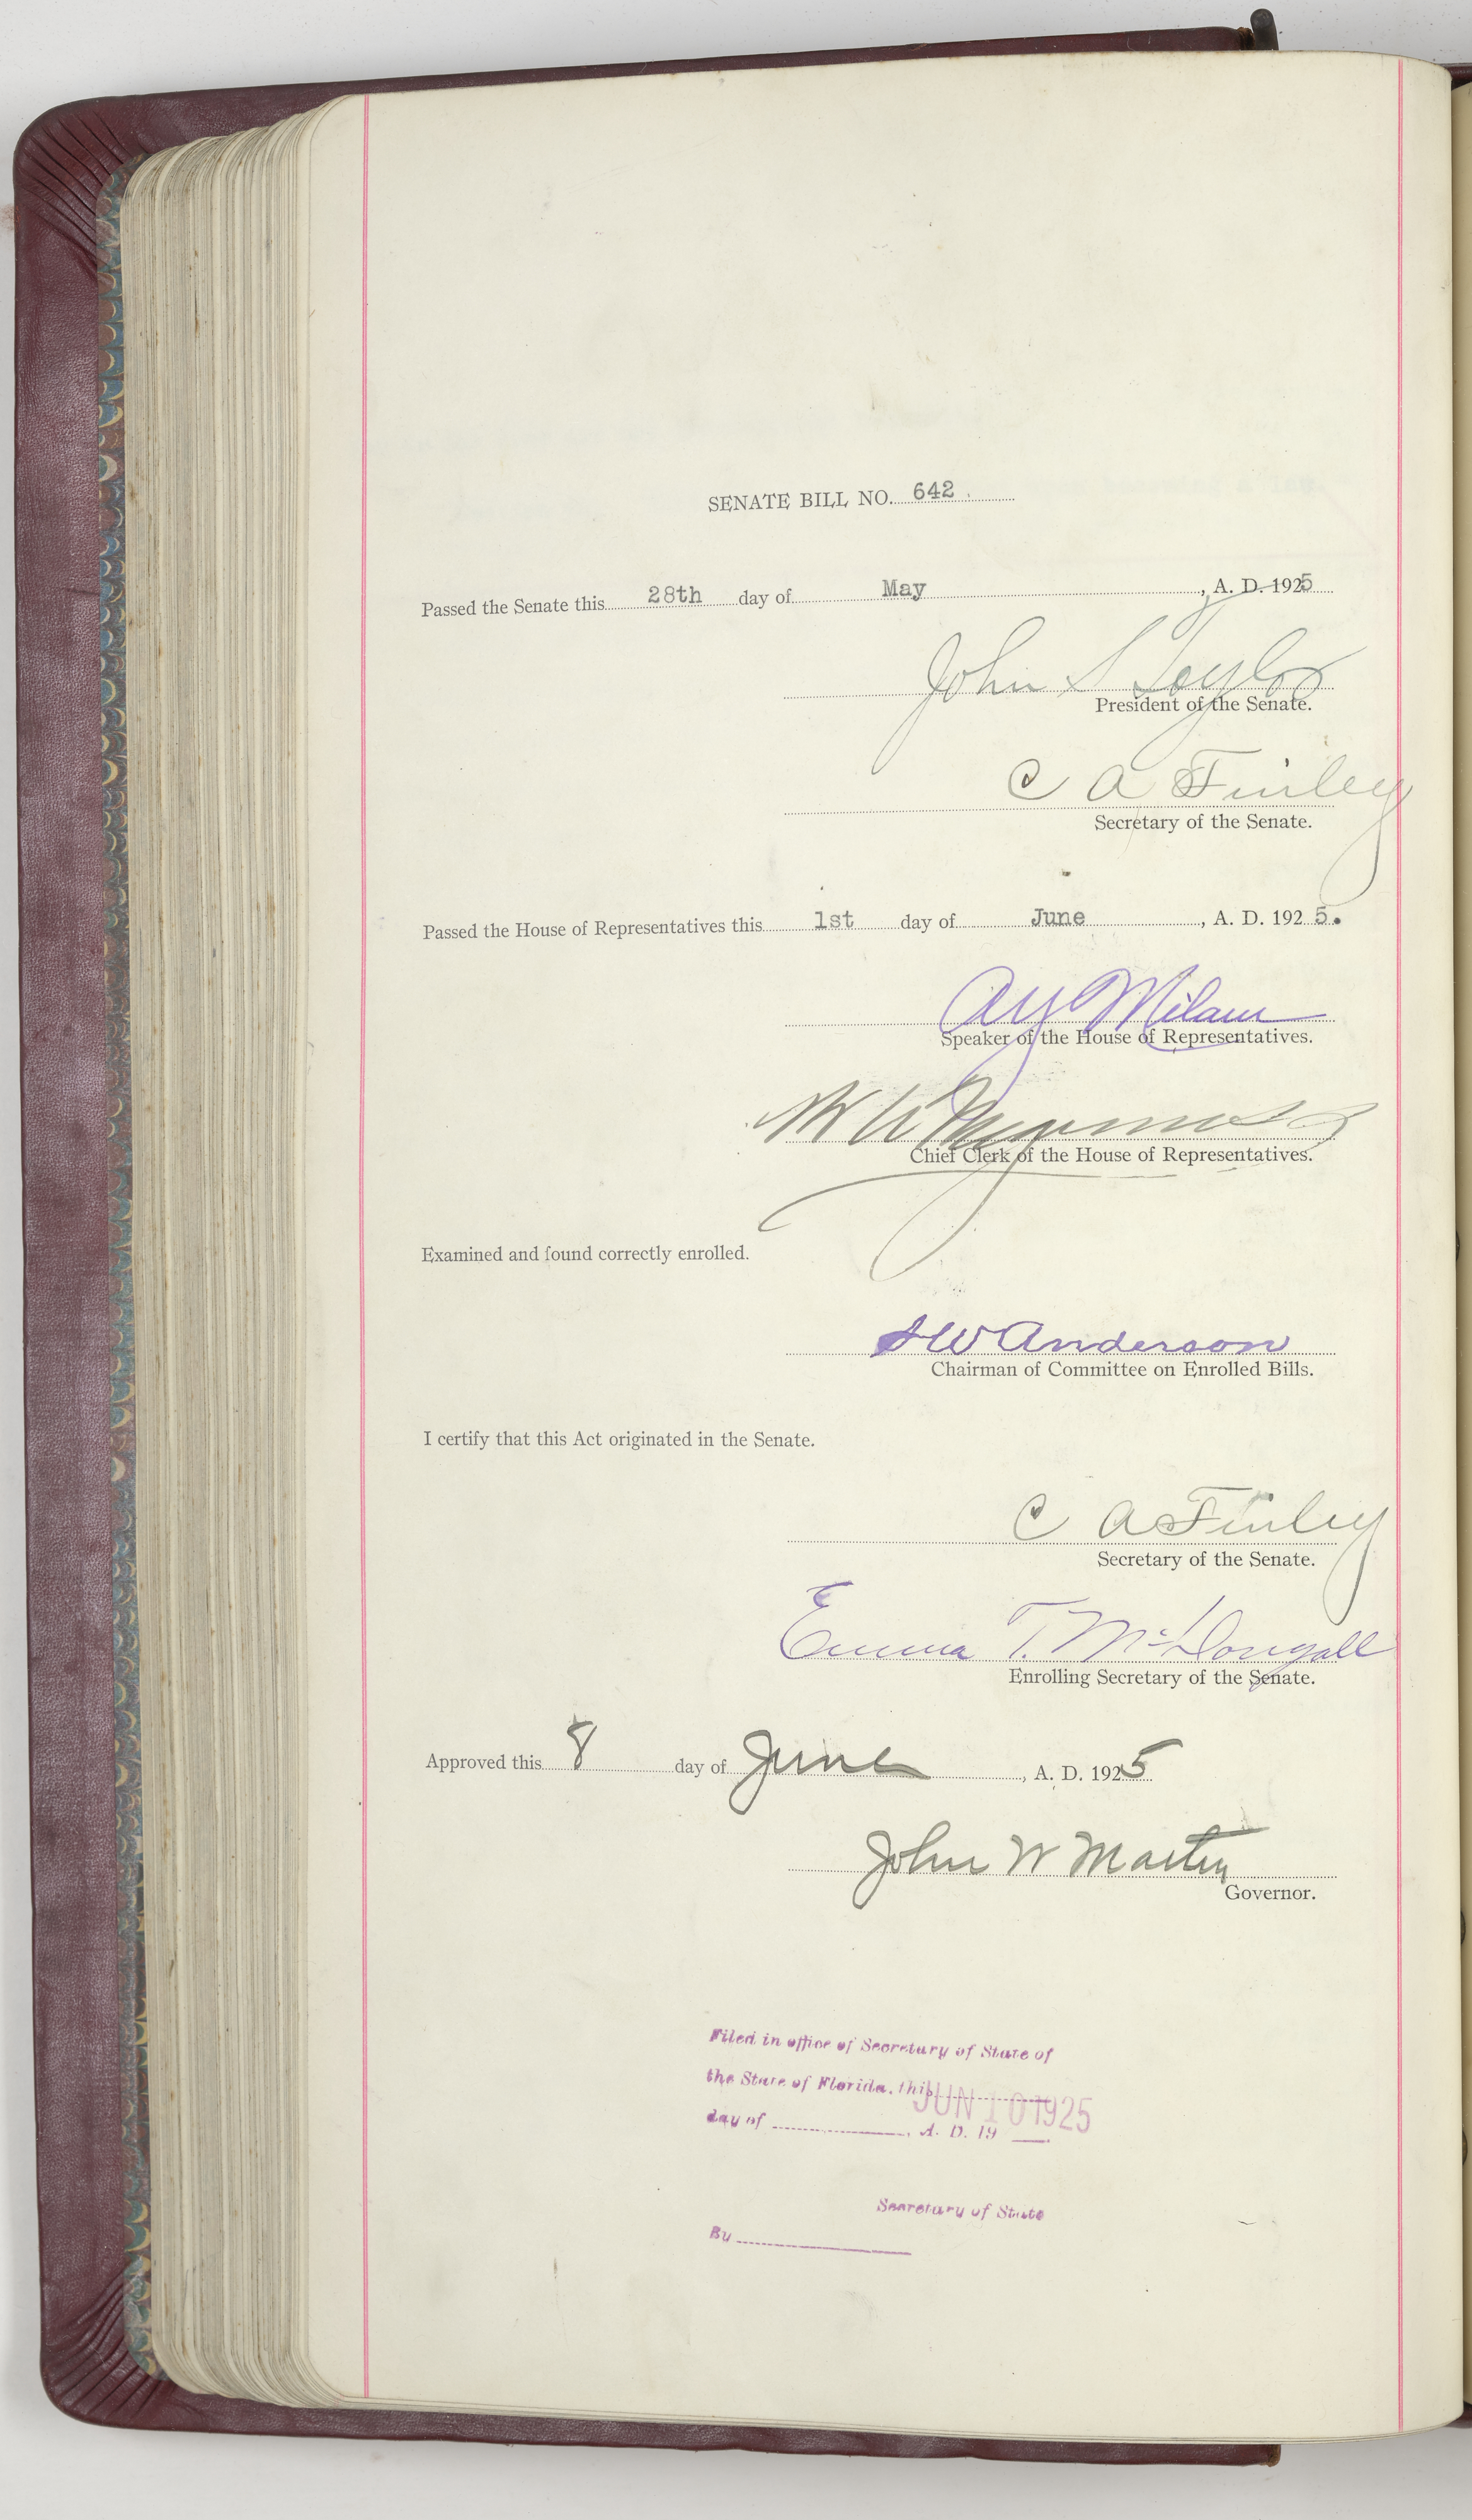 SENATE BILL NO. 642.
Passed the Senate this 28th day of May, A. D. 1925
John S Taylor
President of the Senate.
C A Finley
Secretary of the Senate.
Passed the House of Representatives this 1st day of June, A. D. 1925.
A Y Milam
Speaker of the House of Representatives.
Chief Clerk of the House of Representatives.
Examined and found correctly enrolled.
W Anderson
Chairman of Committee on Enrolled Bills.
I certify that this Act originated in the Senate.
C A Finley
Secretary of the Senate.
Emma T. McDougall
Enrolling Secretary of the Senate.
Approved this 8 day of June, A. D. 1925
John W Martin
Governor.
Filed in office of Secretary of State of
the State of Florida, this
JUN 10 1925
day of , A. D. 19
Secretary of State
By